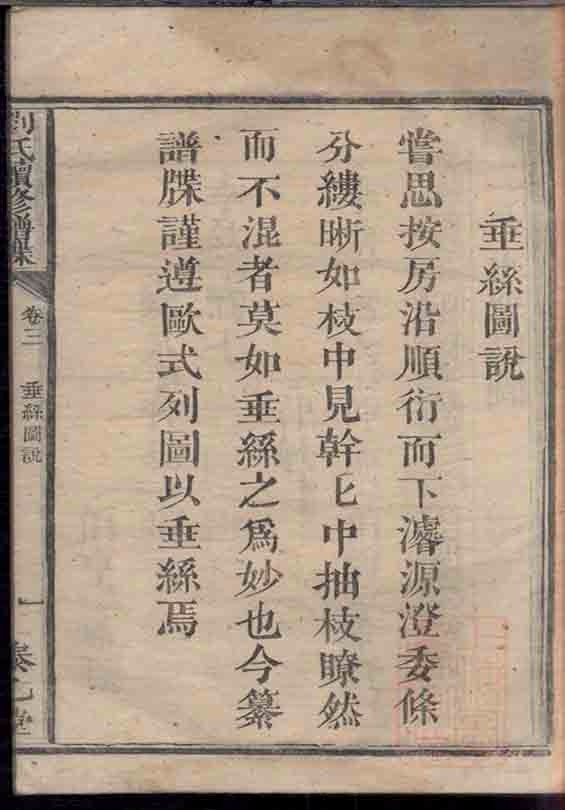 垂絲圖說
嘗思按房沿順衍而下濬源澄委條
分縷晰如枝中見幹匕中抽枝瞭然
而不混者莫如垂絲之爲妙也今纂
譜牒謹遵歐式列圖以垂絲焉
劉氏續修譜牒
卷三
垂絲圖說
一
堂